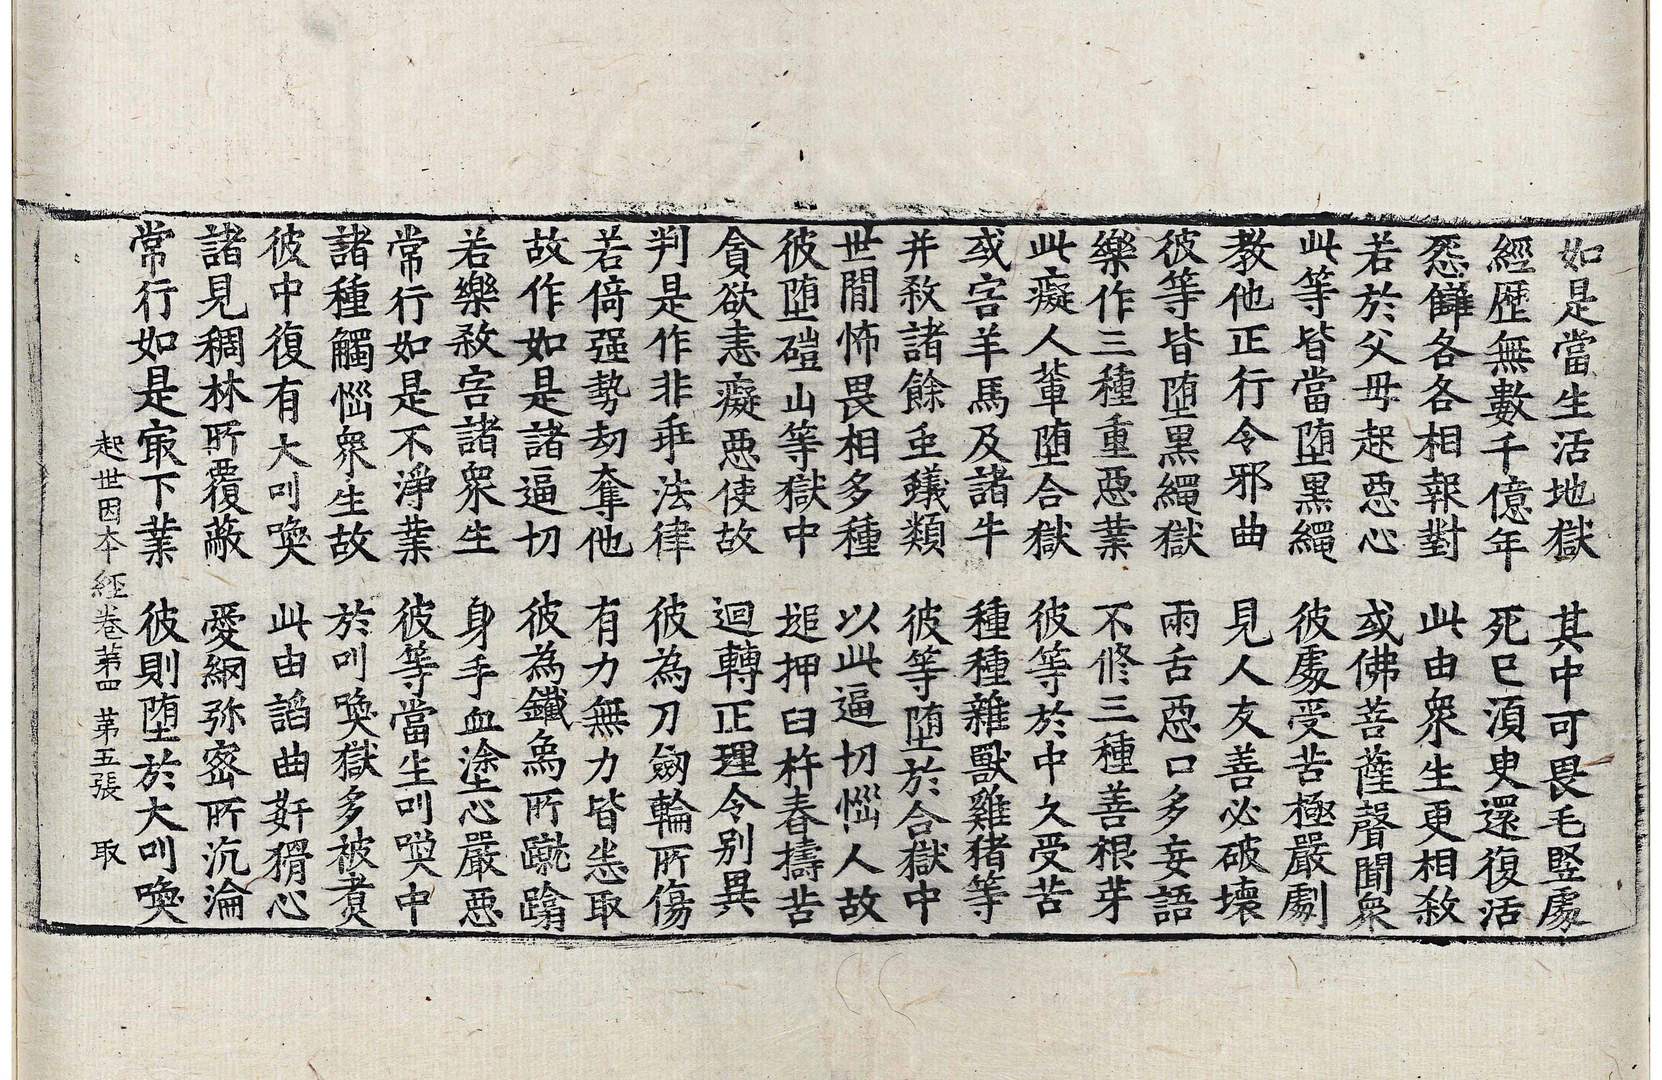 如是當生活地獄　其中可畏毛竪處
經歷無數千億年　死已湏臾還復活
怨讎各各相報對　此由衆生更相敎
若於父母起惡心　或佛菩薩聲聞衆
此等皆當堕黒繩　彼處受苦極嚴劇
教他正行令邪曲　見人友善必破壞
彼等皆堕黒繩獄　兩舌惡口多妄語
樂作三種重惡業　不修三種善根芽
此癡人輩堕合獄　彼等於中久受苦
或害羊馬及諸牛　種種雜獸雞猪等
并殺諸餘虫蟻類　彼等堕於合獄中
世間怖畏相多種　以此逼切惱人故
彼堕磑山等獄中　搥押臼杵舂擣苦
貪欲恚癡惡使故　迴轉正理令別異
判是作非乖法律　彼為刀劒輪所傷
若倚强勢刼奪他　有力無力皆悉取
故作如是諸逼切　彼為鐵象所蹴蹹
若樂殺害諸衆生　身手血塗心嚴惡
常行如是不淨業　彼等當生叫喚中
諸種觸惱衆生故　於叫喚獄多被煑
彼中復有大叫喚　此由諂曲姧猾心
諸見稠林所覆蔽　愛網弥密所沉淪
常行如是㝡下業　彼則堕於大叫喚
起世因本經卷第四　第五張　取